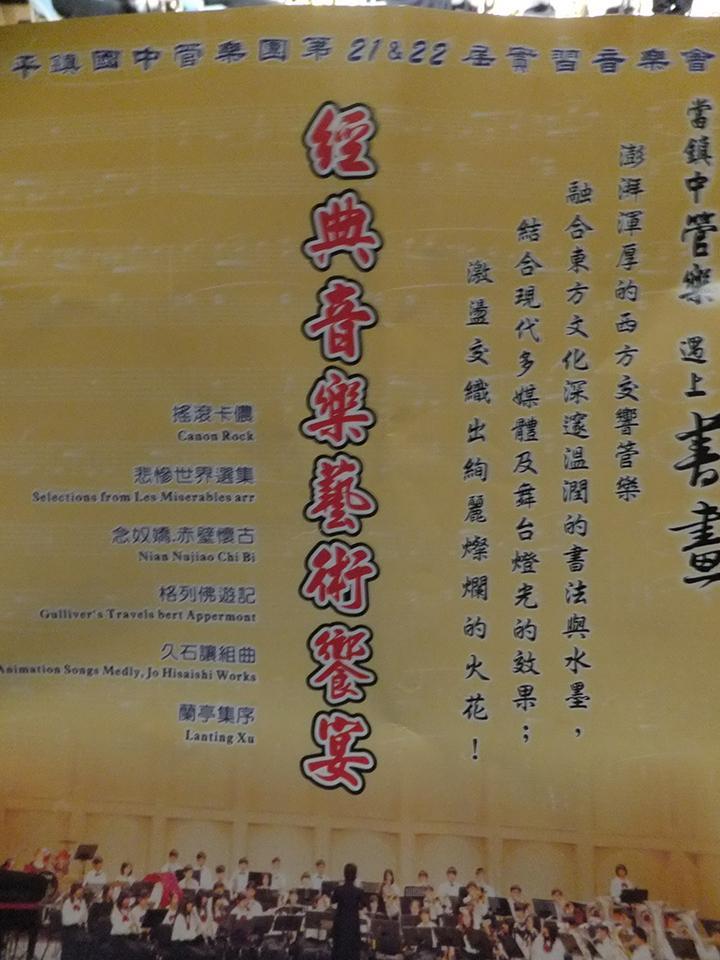 平鎮國中管樂團第21&22屆實習音樂會
當鎮中管樂 遇上書畫
澎湃渾厚的西方交響管樂
融合東方文化深邃溫潤的書法與水墨，
結合現代多媒體及舞台燈光的效果；
激盪交織出絢麗燦爛的火花！
經典音樂藝術饗宴
搖滾卡儂
Canon Rock
悲慘世界選集
Selections from Les Miserables arr
念奴嬌.赤壁懷古
Nian Nujiao Chi Bi
格列佛遊記
Gulliver's Travels bert Appermont
久石讓組曲
Animation Songs Medly, Jo Hisaishi Works
蘭亭集序
Lanting Xu